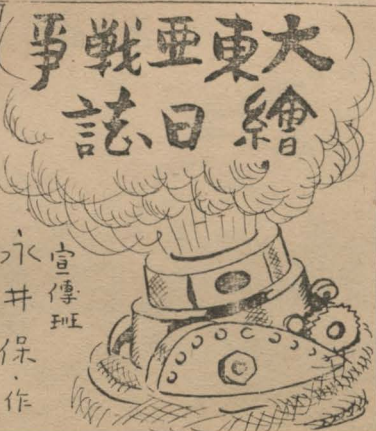 大東亜戦爭
繪日誌
宣傳班
永井保・作